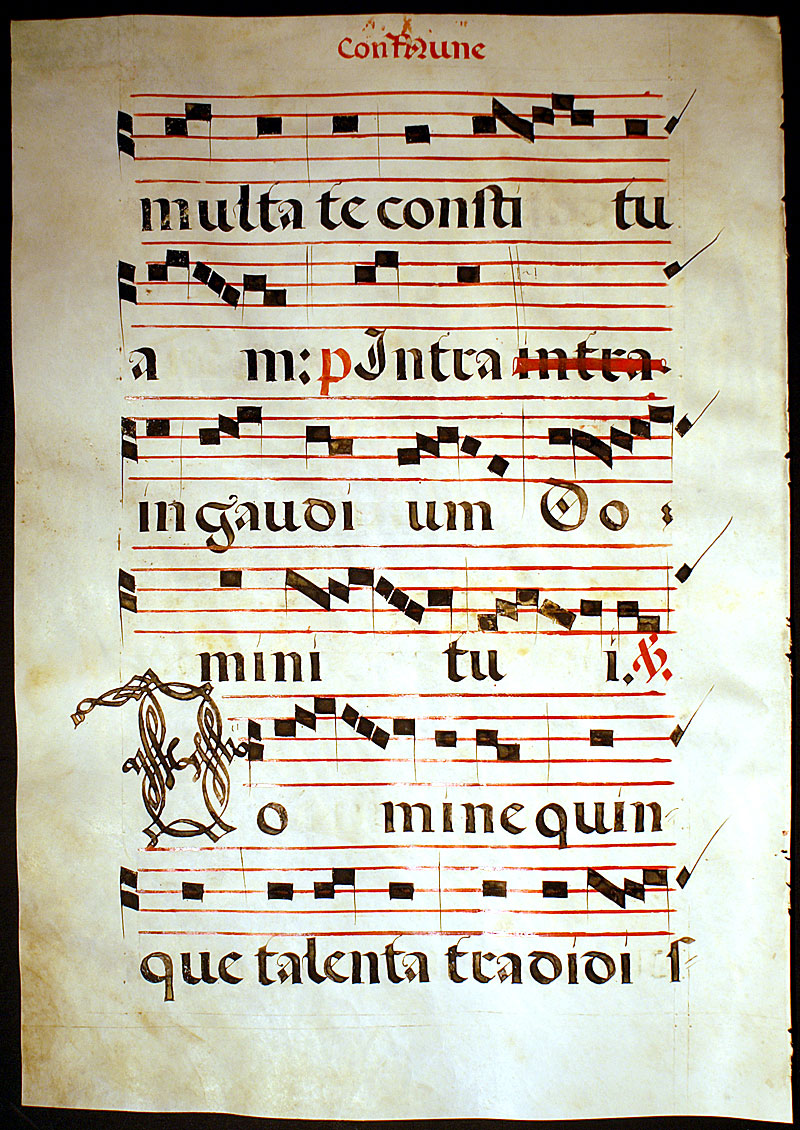 Commune
multa te consti tu
a m: p Intra intra
in gaudi um Do :
mini tu i. ℣.
Do mine quin
que talenta tradidi s